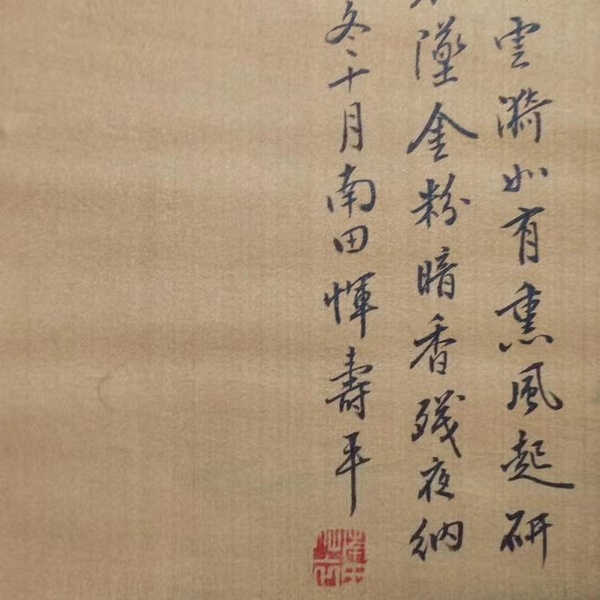 雲漪如有熏風起研
墜金粉暗香殘夜納
冬十月南田惲壽平